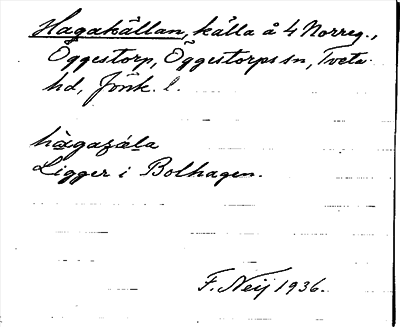 Hagakällan, källa å 4 Norreg.,
Öggestorp, Öggestorps sn, Tveta
hd, Jönk. l.
hàgaɕäla
Ligger i Bolhagen.
F. Neij 1936.